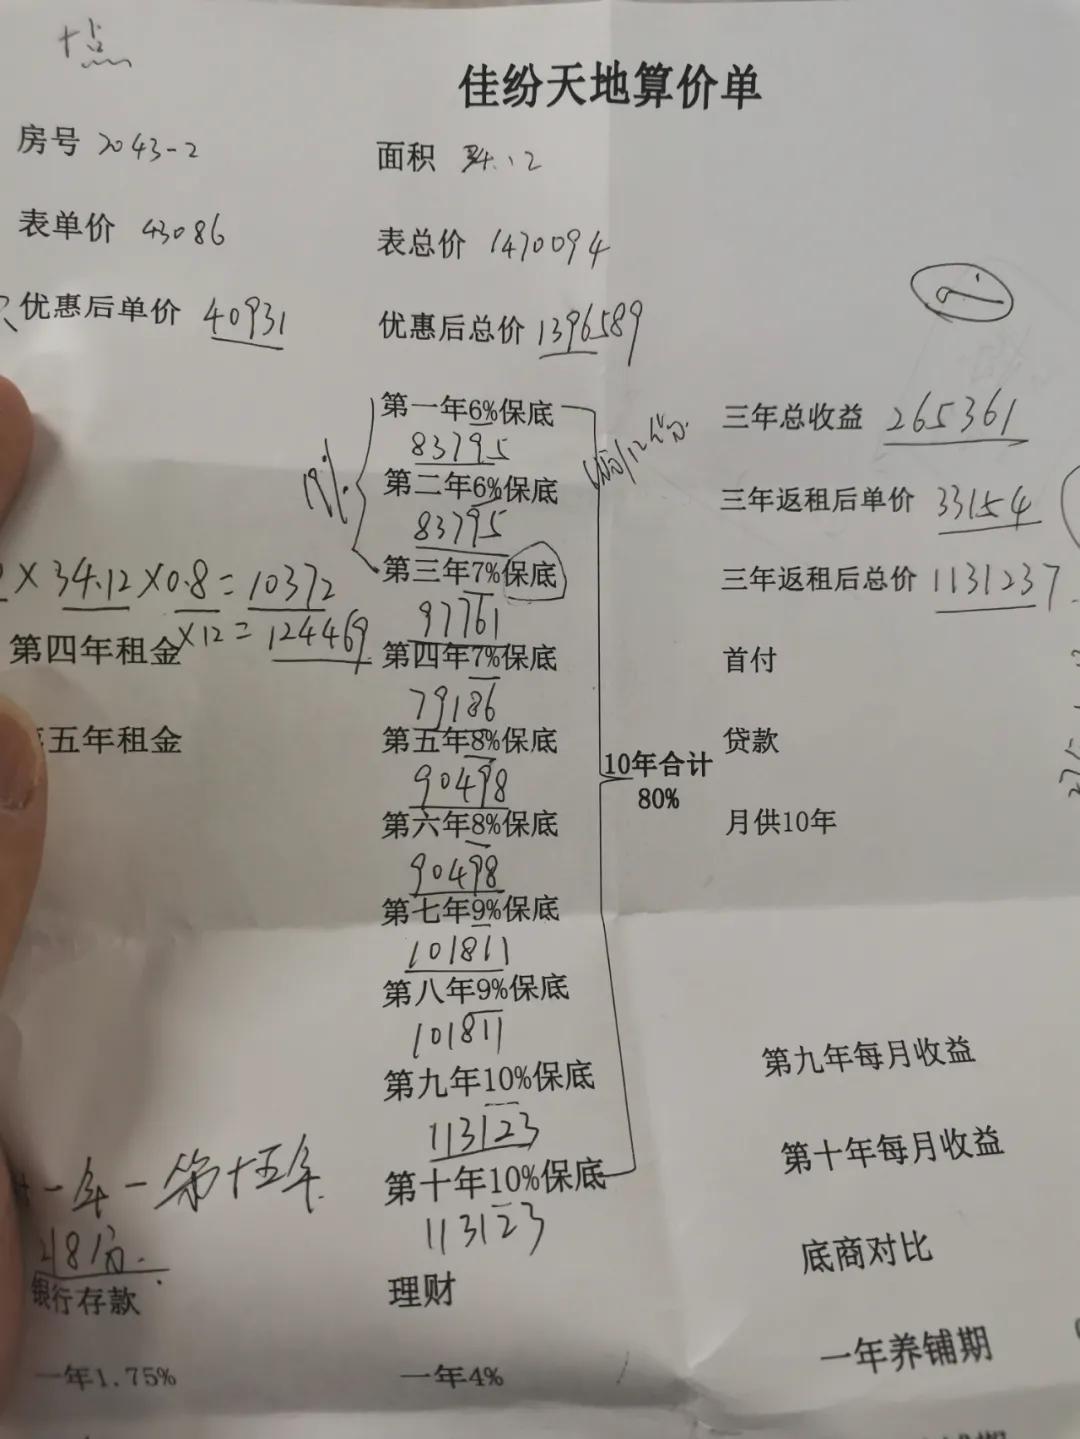 十点
佳纷天地算价单
房号 2043-2 面积 34.12
表单价 43086 表总价 1470094
优惠后单价 40931 优惠后总价 1396589
第一年6%保底 三年总收益 265361
83795
第二年6%保底 三年返租后单价 33154
83795
19%
第三年7%保底 三年返租后总价 1131237
97761
×34.12×0.8=10372
×12=124469
第四年租金 第四年7%保底 首付
79186
五年租金 第五年8%保底 贷款
90498
10年合计
80%
第六年8%保底 月供10年
90498
第七年9%保底
101811
第八年9%保底
101811
第九年10%保底 第九年每月收益
113123
第十年10%保底 第十年每月收益
113123
一年-第十五年
银行存款 理财 底商对比
一年1.75% 一年4% 一年养铺期